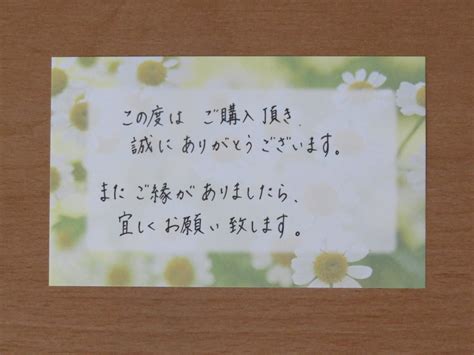 この度は ご購入頂き、
誠に ありがとうございます。
また ご縁が ありましたら、
宜しく お願い 致します。